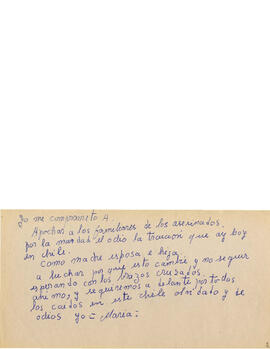 Yo me comprometo A.
Apochar a los familiares de los asesinados.
por la maldad el odio la traicion que ay hoy
en chile.
Como madre esposa e hija
a luchar por que esto cambie y no seguir
esperando con los brazos cruzados.
y seguiremos a delante por todos
los caidos en este chile olvidado y de
odios yo = Maria =